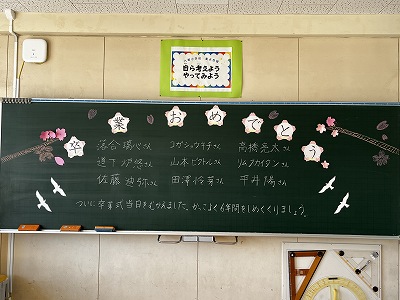 自ら考えよう
やってみよう
卒業おめでとう
落合 さん おがショウ千子さん 高橋亮太さん
道下 さん 山本ビクトルさん リムカイタンさん
佐藤 さん 田澤怜芽さん 平井陽さん
ついに卒業式当日をむかえました。かっこよく6年間をしめくくりましょう。